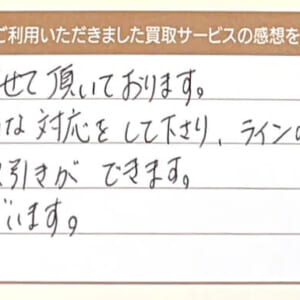 ご利用いただきました買取サービスの感想を
せて頂いております。
な対応をして下さり、ラインの
引きができます。
います。